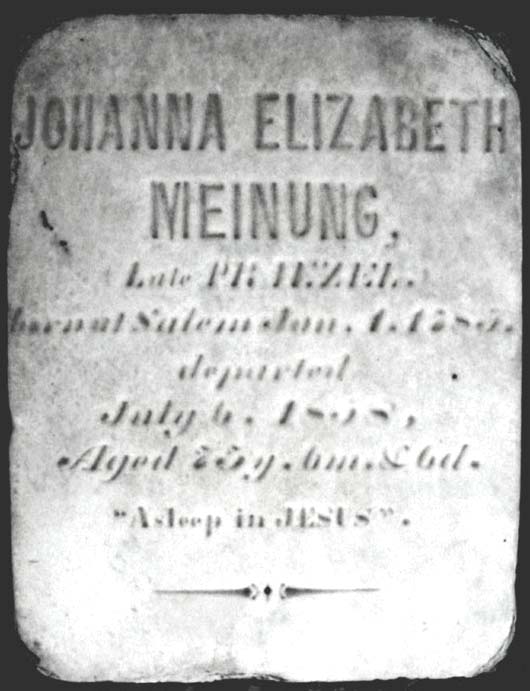 JOHANNA ELIZABETH
MEINUNG,
(Late PRAEZEL.)
born at Salem Jan. 1. 1785.
departed
July 6. 1858,
Aged 73y. 6m. & 6d.
"Asleep in JESUS".